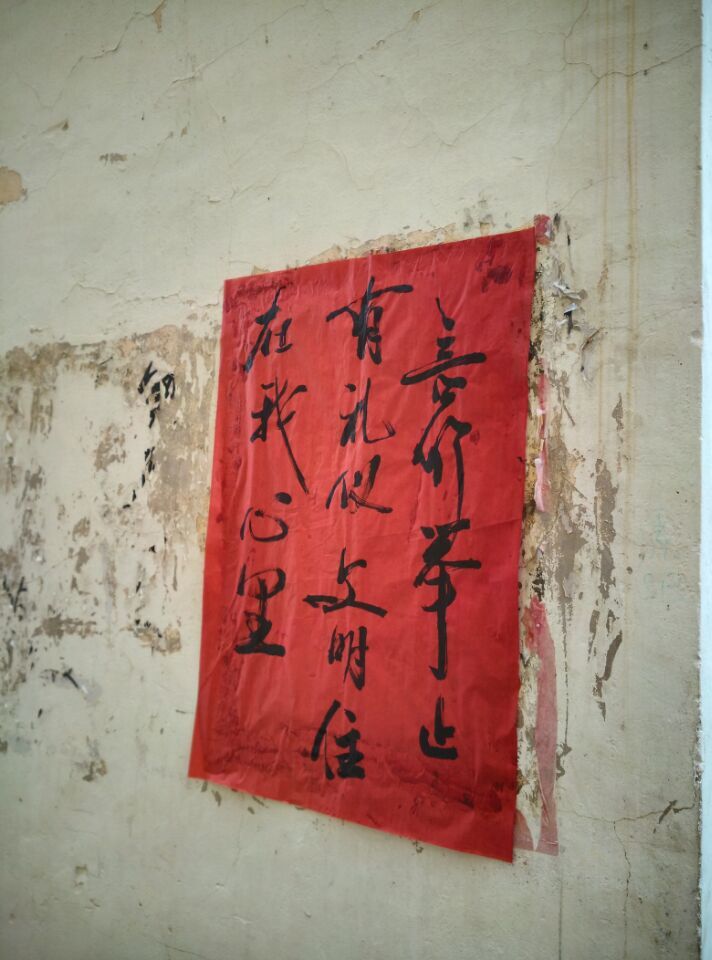 言行举止
有礼仪文明住
在我心里